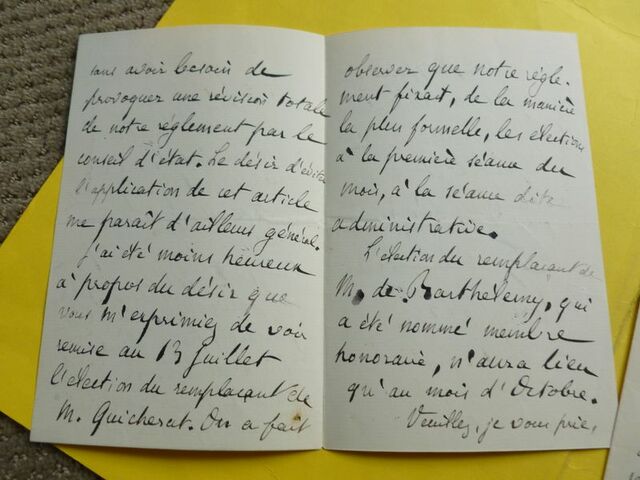 sans avoir besoin de
provoquer une révision totale
de notre réglement par le
conseil d'état. Le désir d'éviter
l'application de cet article
me paraît d'ailleurs général.
J'ai été moins heureux
à propos du désir que
vous m'exprimiez de voir
remise au 13 juillet
l'élection du remplaçant de
M. Quicherat. On a fait
observer que notre régle-
ment fixait, de la manière
la plus formelle, les élections
à la première séance du
mois, à la séance dite
administrative.
L'élection du remplaçant de
M. de Barthélemy, qui
a été nommé membre
honoraire, n'aura lieu
qu'au mois d'Octobre.
Veuillez, je vous prie,